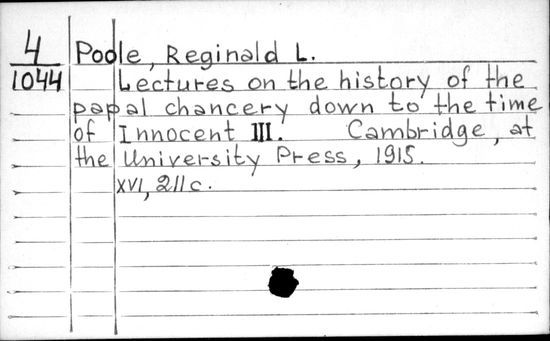 4
1044
Poole, Reginald L.
Lectures on the history of the
papal chancery down to the time
of Innocent III. Cambridge, at
the University Press, 1915.
XVI, 211 c.